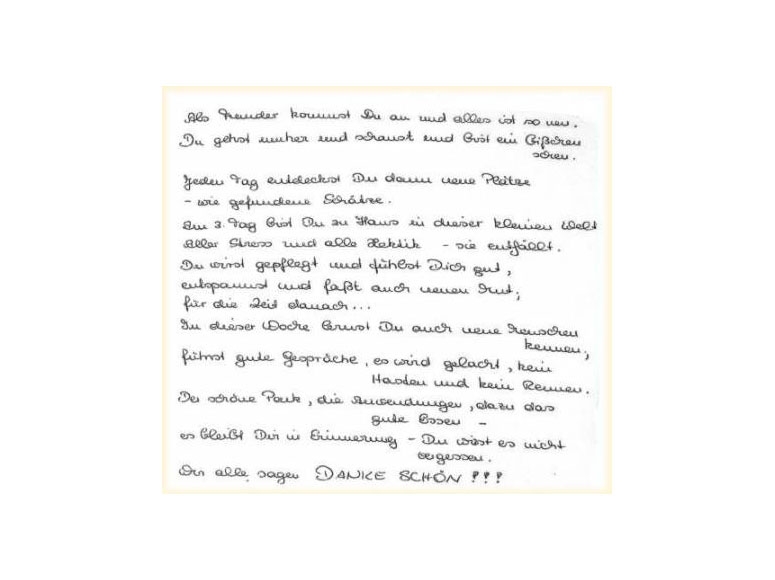 Als Fremder kommst Du an und alles ist so neu.
Du gehst umher und schaust und bist ein bißchen
scheu.
Jeden Tag entdeckst Du dann neue Plätze
- wie gefundene Schätze.
Am 3. Tag bist Du zu Haus in dieser kleinen Welt
Aller Stress und alle Hektik - sie entfällt.
Du wirst gepflegt und fühlst Dich gut,
entspannst und faßt auch neuen Mut,
für die Zeit danach...
In dieser Woche lernst Du auch neue Menschen
kennen,
führst gute Gespräche, es wird gelacht, kein
Hasten und kein Rennen.
Der schöne Park, die Anwendungen, dazu das
gute Essen -
es bleibt Dir in Erinnerung - Du wirst es nicht
vergessen.
Wir alle sagen DANKE SCHÖN !!!